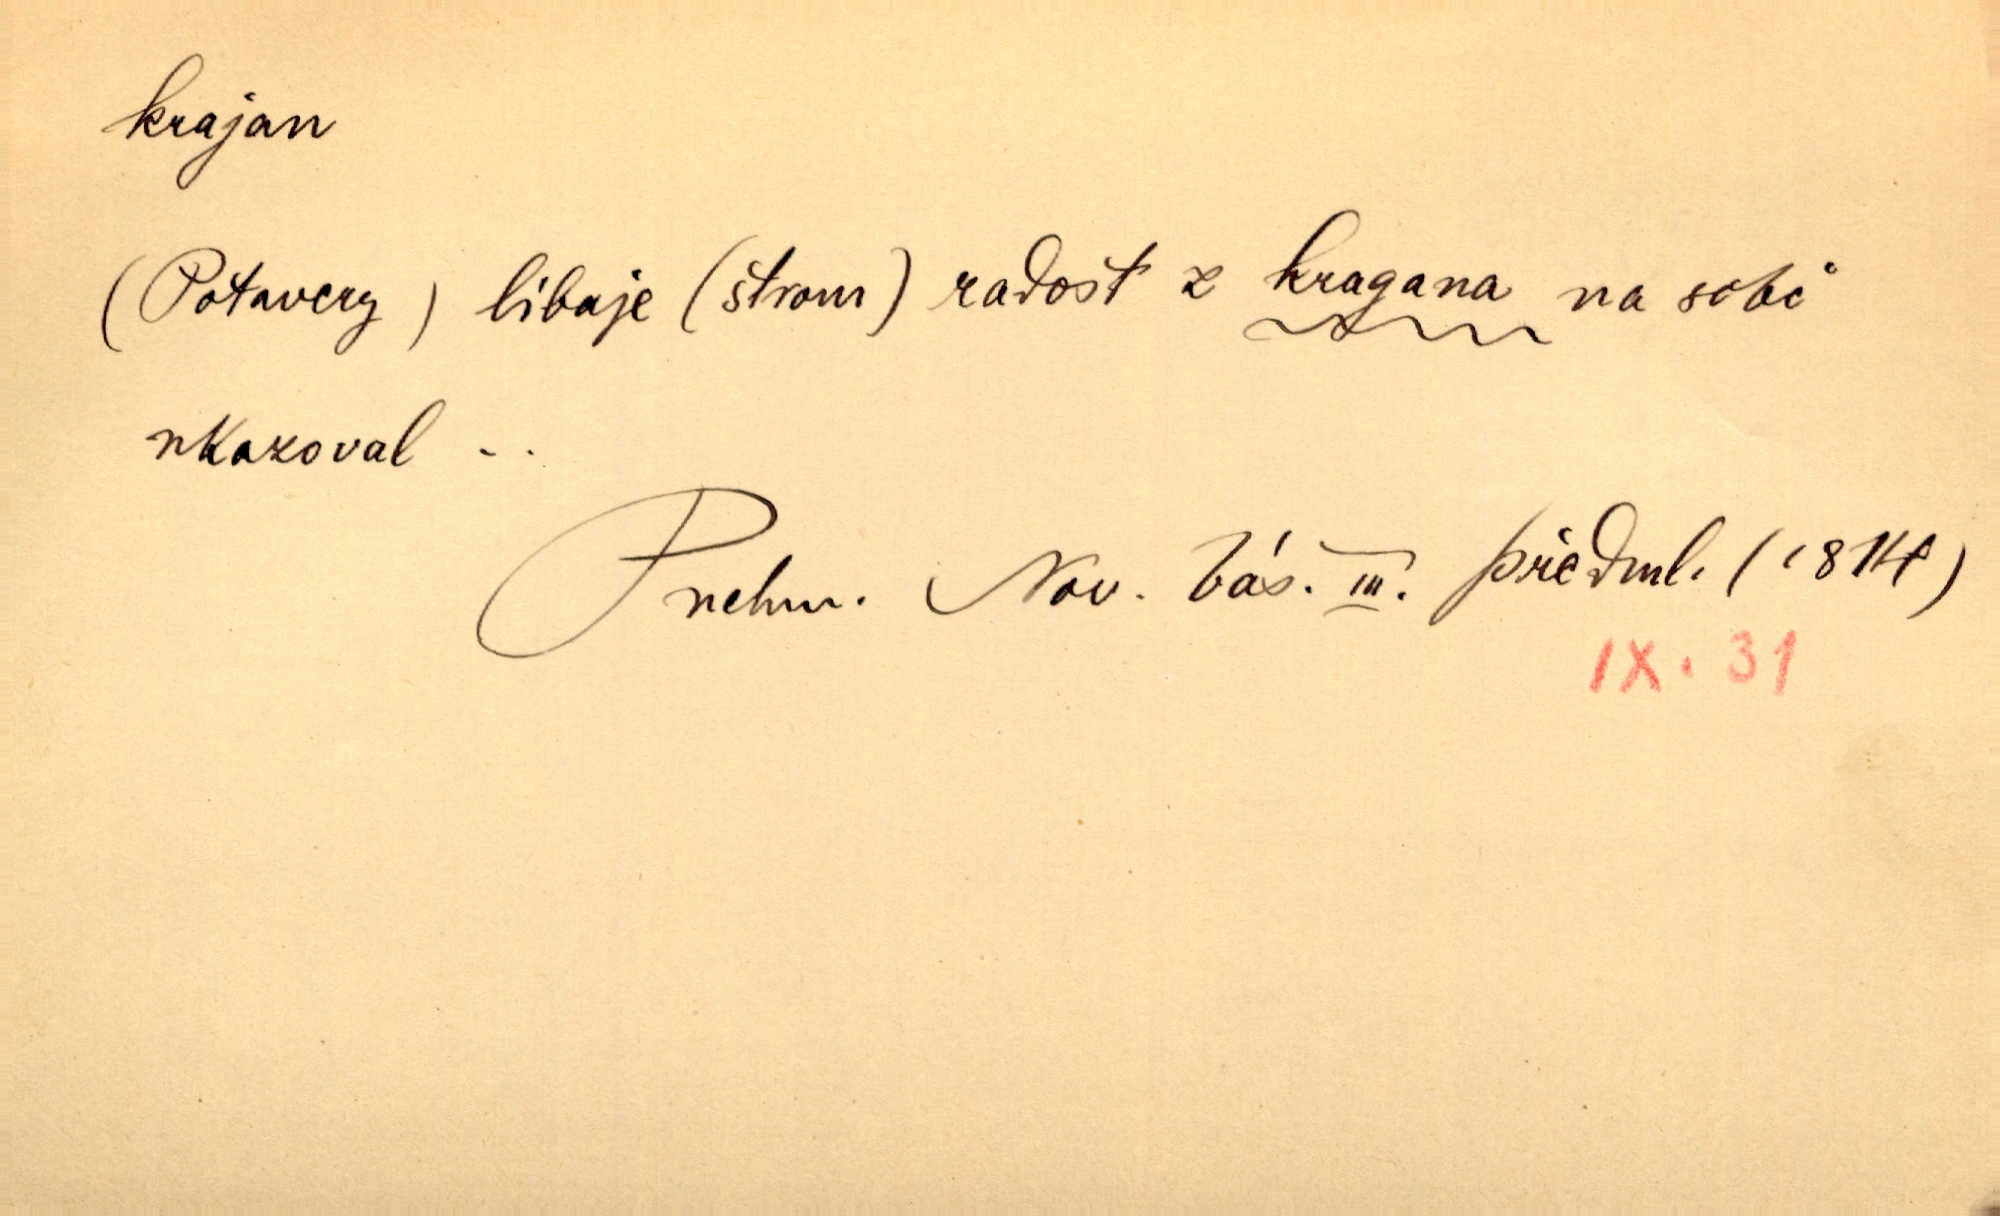 krajan
(Potavery) líbaje (štrom) radost z kragana na sobě
ukazoval ..
Puchm. Nov. bás. III. předml. (1814)
IX. 31